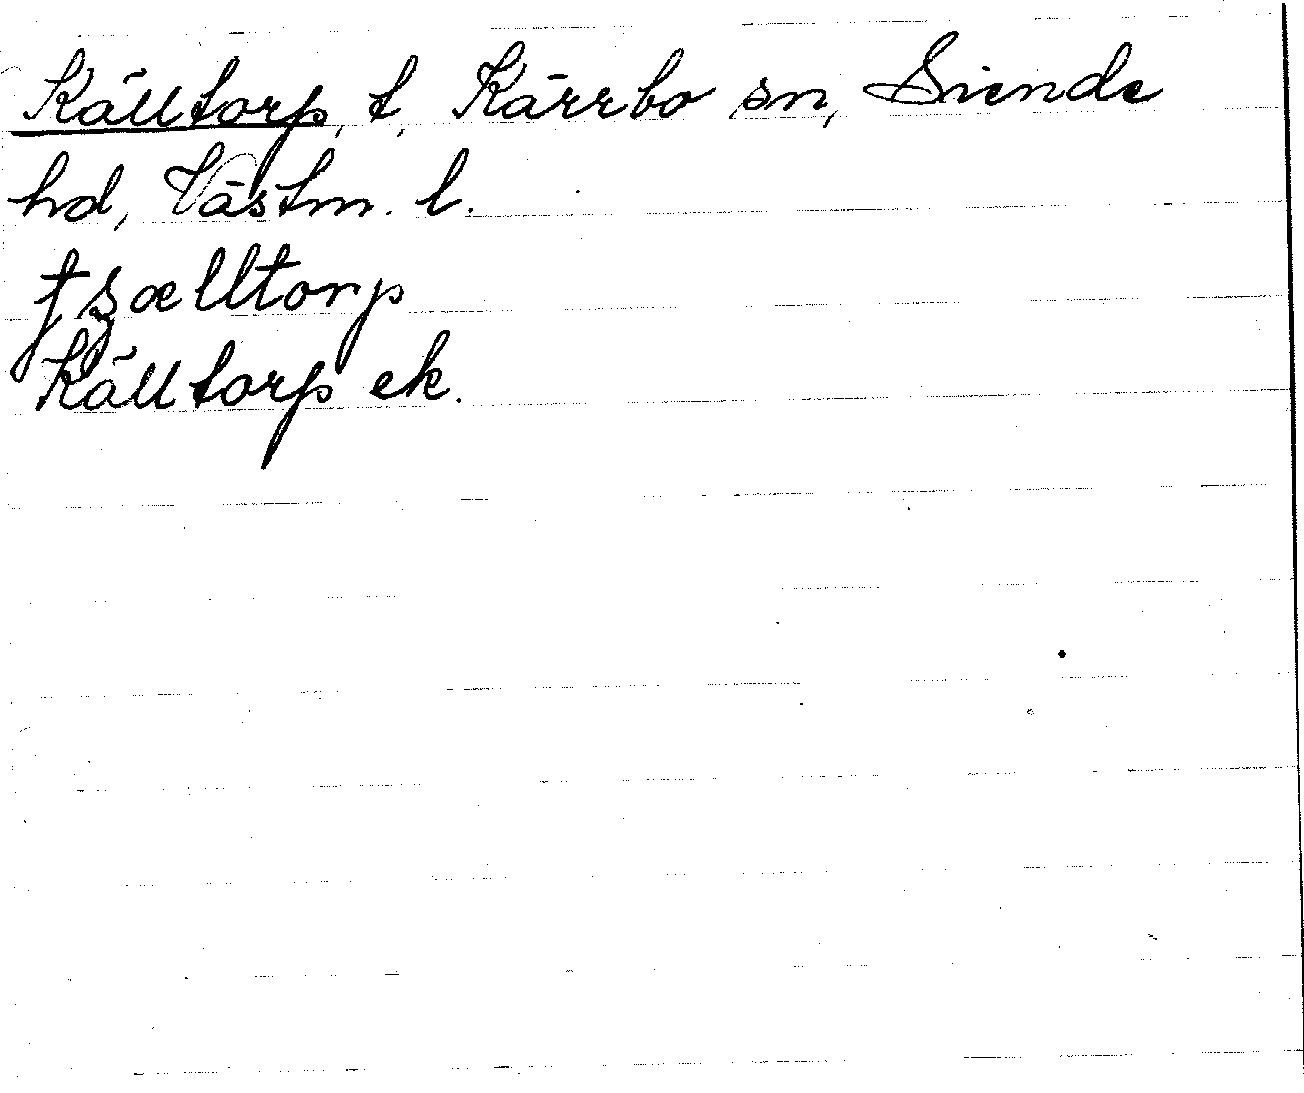 Källtorp, t, Kärrbo sn, Siende
hd, Västm. l.
tʂælltorp
Källtorp ek.